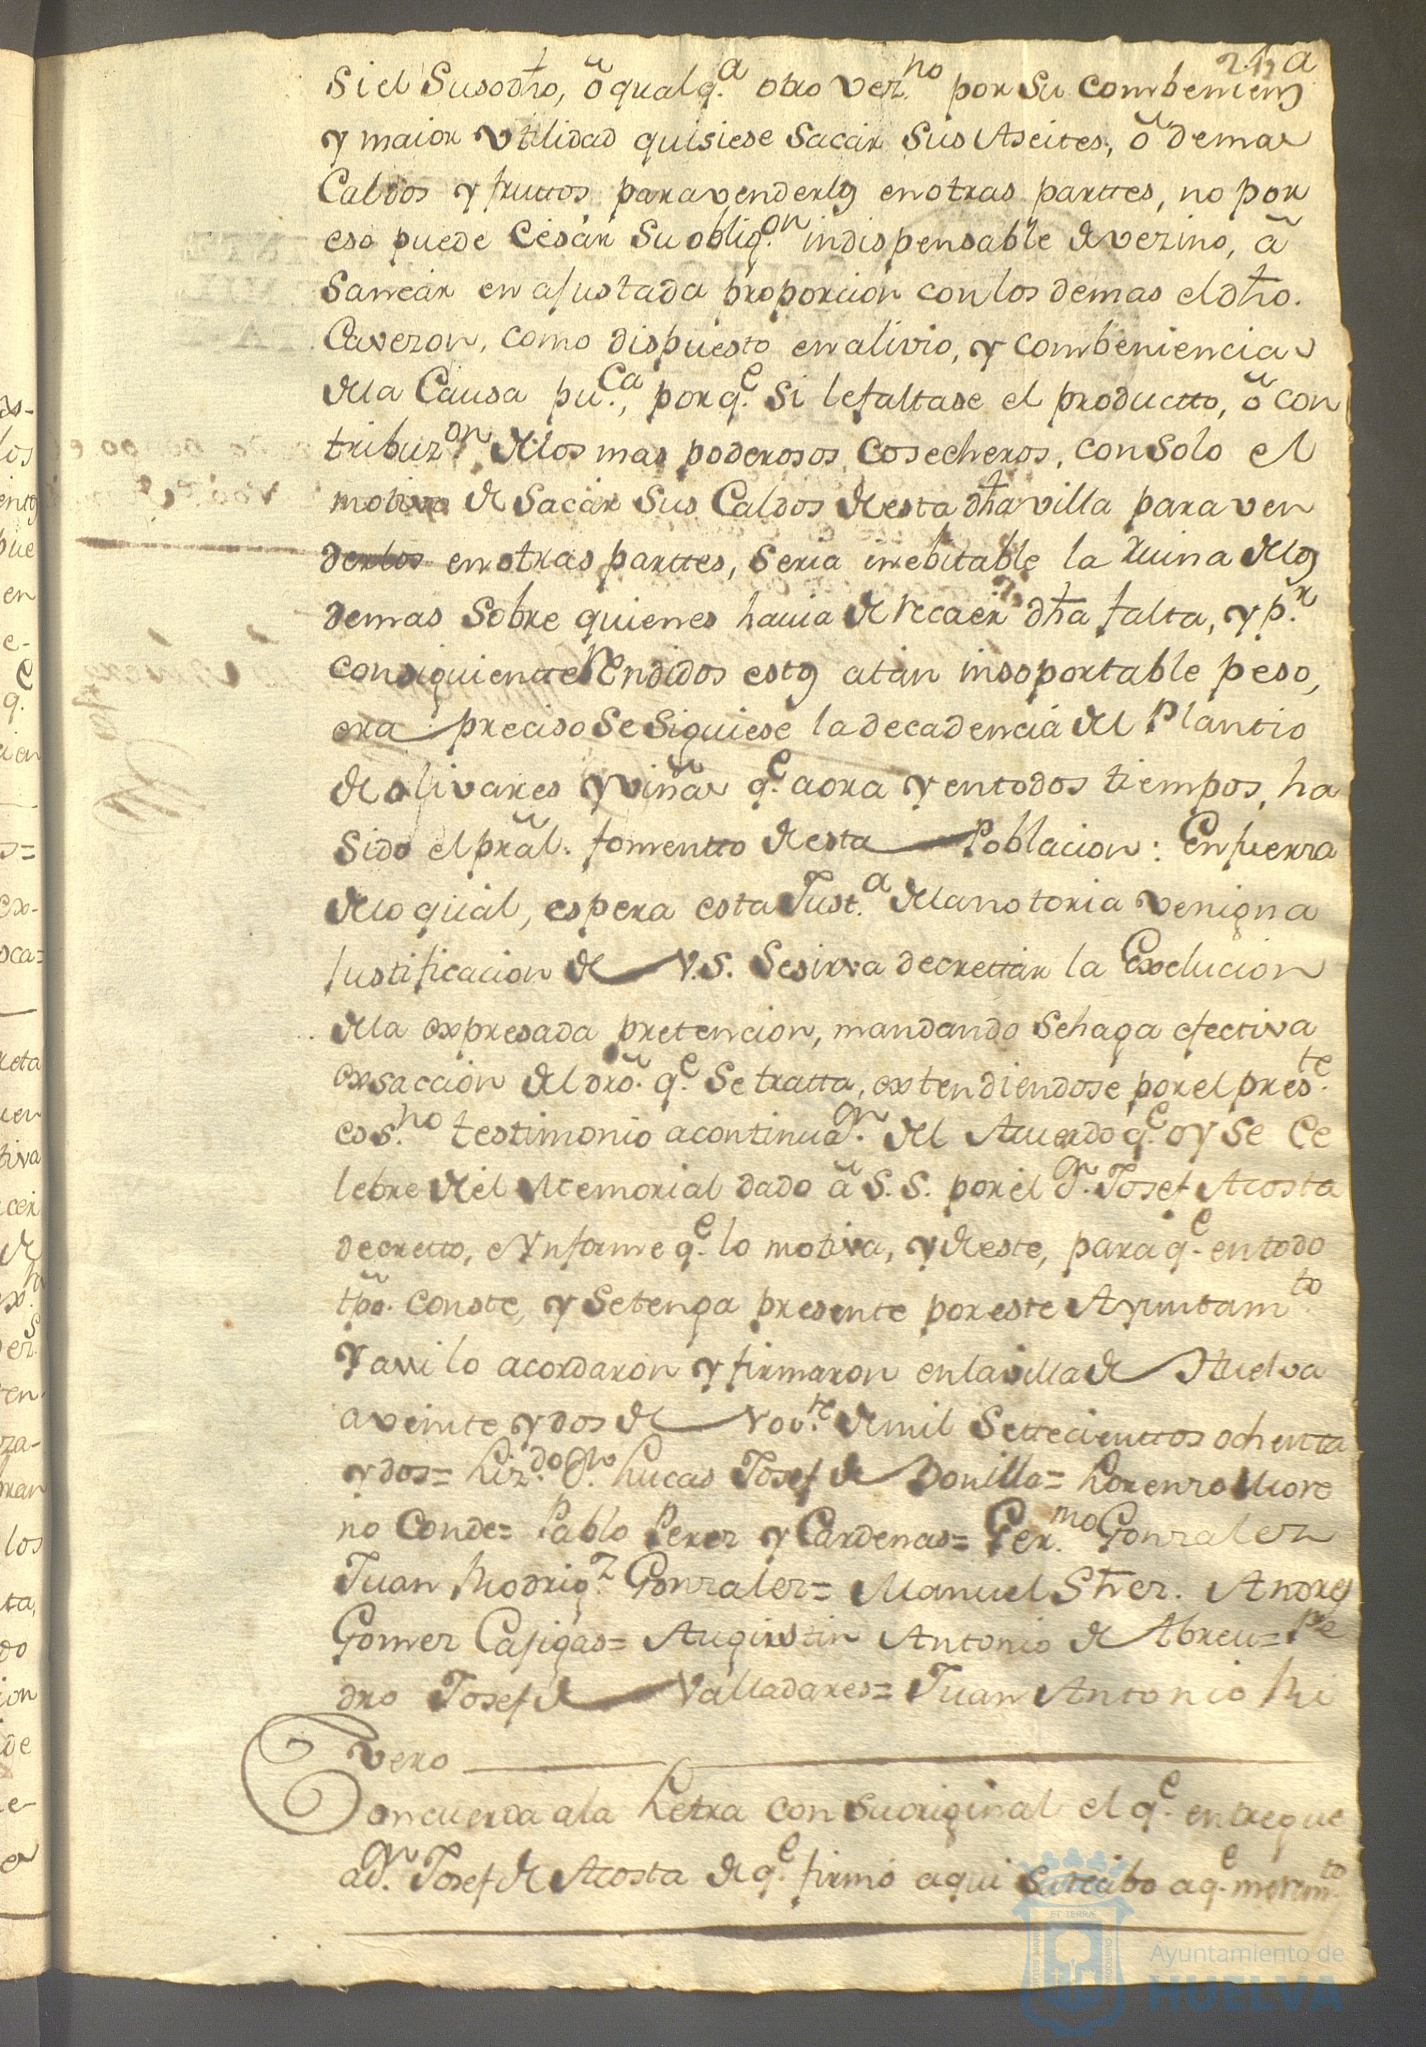 Si el Susodho, ô qualq.a otro vez.no por Su combeniens.a
y maior utilidad quisiese Sacar Sus Aseites, ô demas
Caldos y fruttos para venderlos en otras parttes, no por
eso puede Cesar Su oblig.on indispensable de vezino, â
Sanear en ajustada proporcion con los demas el dho.
Cavezon, como dispuesto en alivio, y combeniencia
de la Causa pu.ca, porq.e Si le faltase el productto, ô con
tribuz.on de los mas poderosos Cosecheros, con Solo el
motivo de Sacar Sus Caldos de esta dha villa para ven
derlos en otras parttes, Seria inebitable la ruina de los
demas Sobre quienes havia de recaer dha falta, y p.r
consiguiente rendidos estos a tan insoportable peso,
era preciso Se Siguiese la decadencia del Plantio
de olivares y viñas q.e aora y en todos tiempos, ha
Sido el prãl. fomentto de esta Poblacion: En fuerza
de lo qual, espera esta Just.a de la notoria venigna
Justificacion de V.S. Se sirva decrettar la Exclucion
de la expresada pretencion, mandando Se haga efectiva
exsaccion del drõ. q.e Se tratta, extendiendose por el pres.te
ess.no testimonio a continua.on del Acuerdo q.e oy Se Ce
lebre de el Memorial dado â S.S. por el d.n Josef Acosta
decretto, e Ynforme q.e lo motiva, y de este, para q.e en todo
tpõ. conste, y Se tenga presente por este Ayuntam.to
Y assi lo acordaron y firmaron en la villa de Huelva
a veinte y dos de Nov.re de mil Settecienttos ochenta
y dos= Liz.do d.n Lucas Josef de Bonilla= Lorenzo More
no Conde= Pablo Perez y Cardenas= Ger.mo Gonzalez
Juan Rodrig.z Gonzalez= Manuel Shez. Andres
Gomez Casigas= Augustin Antonio de Abreu= Pe
dro Josef de Valladares= Juan Antonio Ri
vero
Concuerda a la Letra con Su original el q.e entregue
a d.n Josef de Acosta de q.e firmó aqui Su recibo a q.e me rem.to
Ayuntamiento de
HUELVA